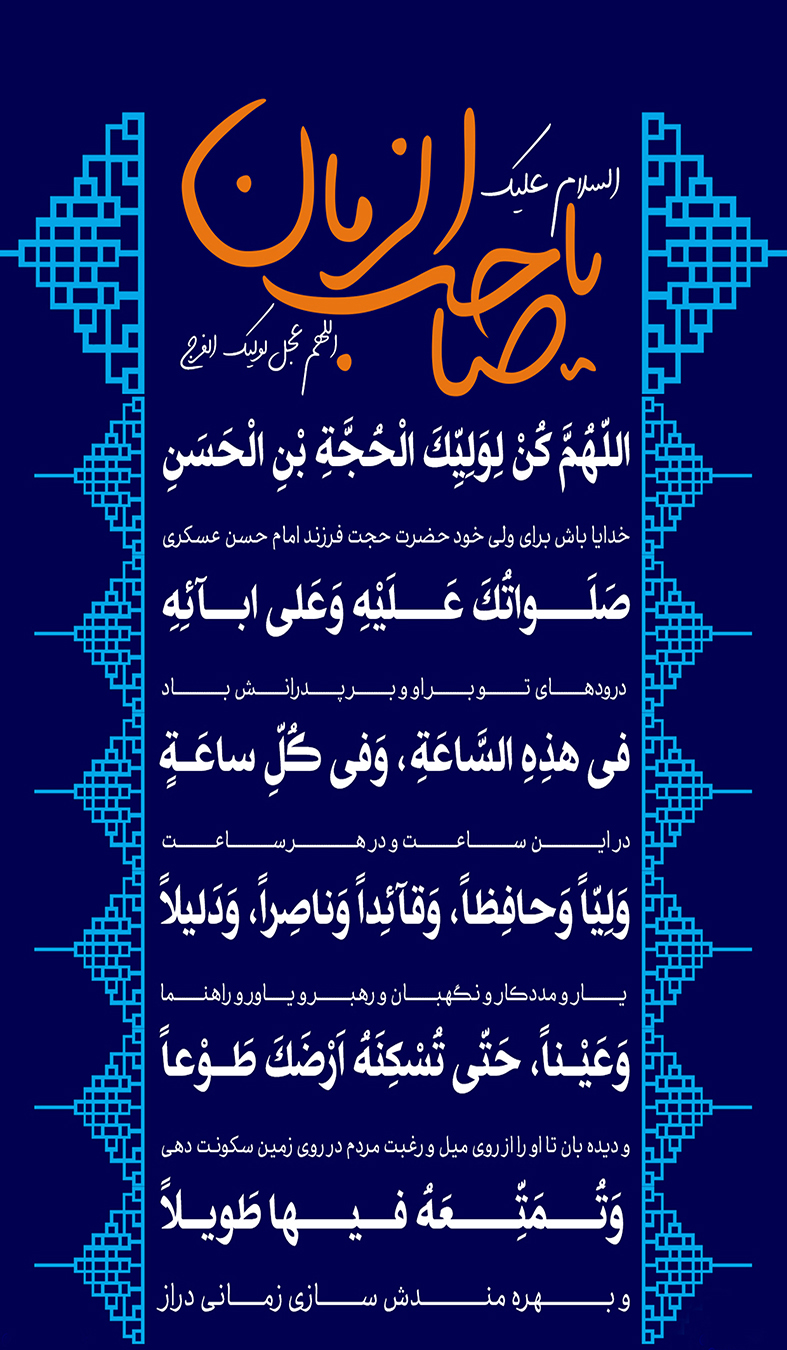 السلام علیک
یا صاحب الزمان
اللهم عجل لولیک الفرج
اللّهُمَّ كُنْ لِوَلِيِّكَ الْحُجَّةِ بْنِ الْحَسَنِ
خدایا باش برای ولی خود حضرت حجت فرزند امام حسن عسکری
صَلَـــواتُكَ عَـــلَيْهِ وَعَلى ابـــآئِهِ
درودهــای تــو بــر او و بــر پــدرانــش بــاد
فى هذِهِ السَّاعَةِ، وَفى كُلِّ ساعَـةٍ
در ایــن ســاعــت و در هــر ســاعــت
وَلِيّاً وَحافِظاً، وَقآئِداً وَناصِراً، وَدَليلاً
یــار و مددکار و نگهبــان و رهبــر و یــاور و راهنــما
وَعَيْـناً، حَتّى تُسْكِنَهُ اَرْضَكَ طَـوْعاً
و دیده بان تا او را از روی میل و رغبت مردم در روی زمین سکونت دهی
وَتُـــمَتِّـــعَهُ فـــيـــها طَويـلاً
و بــهره منــدش ســازی زمــانی دراز